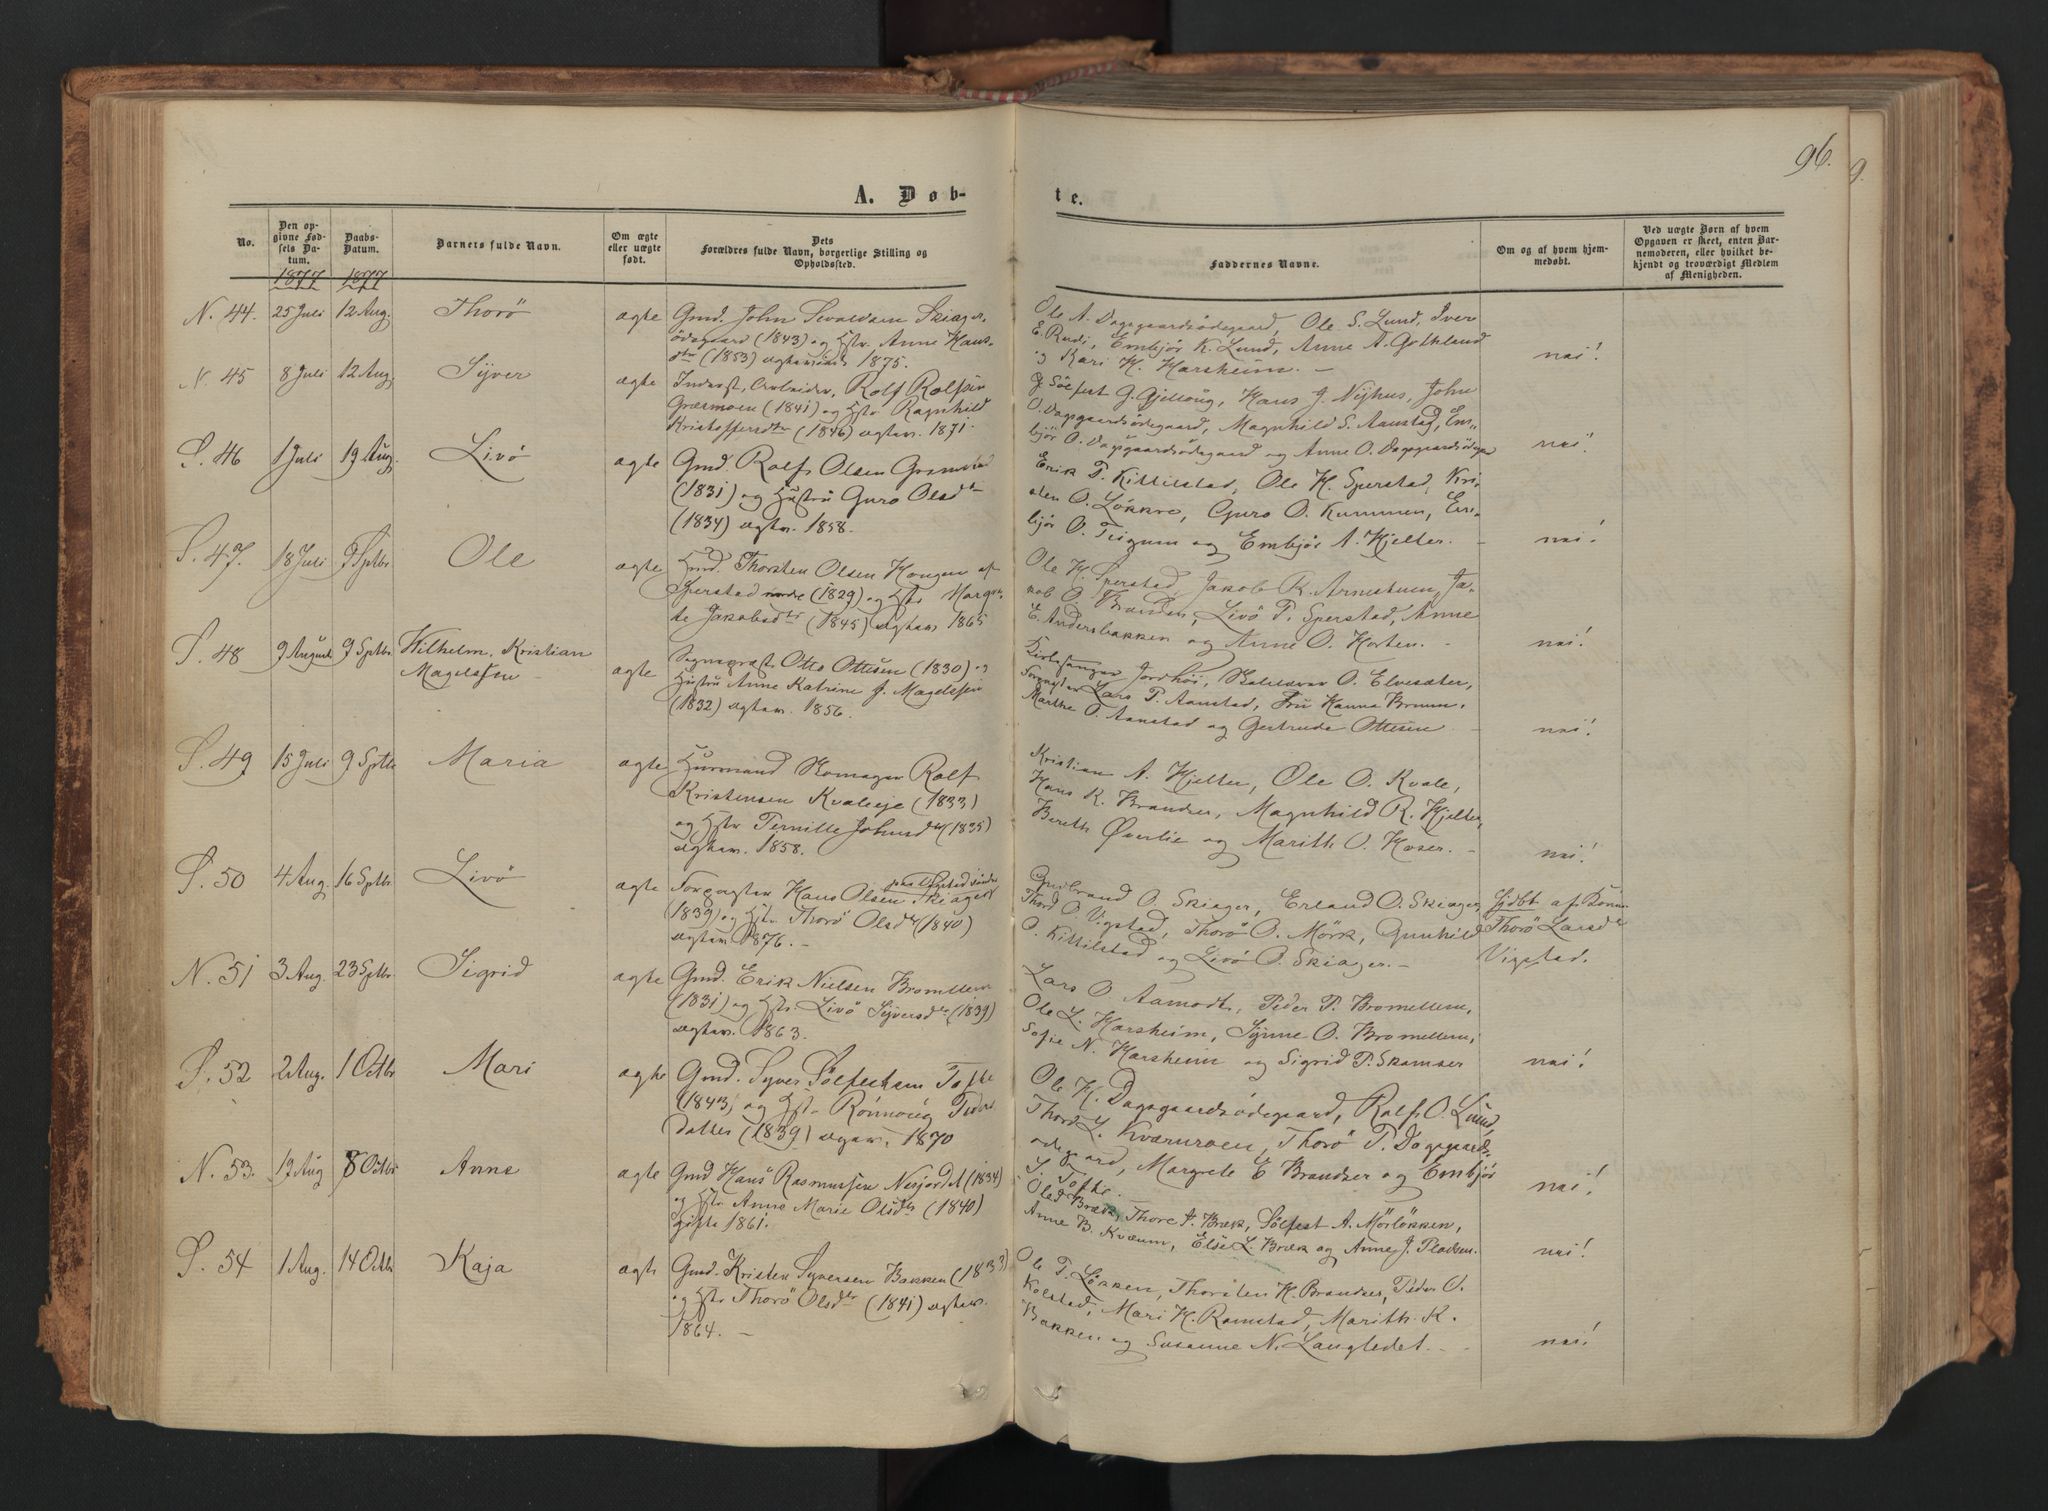 96.
9.
A. Døb-
te.
No.
Den op-
givne Fød-
sels Da-
tum.
Daabs-
Datum.
Barnets fulde Navn.
Om ægte
eller uægte
født.
Dets
Forældres fulde Navn, borgerlige Stilling og
Opholdssted.
Faddernes Navne.
Om og af hvem hjem-
medøbt.
Ved uægte Børn af hvem
Opgaven er skeet, enten Bar-
nemoderen, eller hvilket be-
kjendt og troværdigt Medlem
af Menigheden.
1877 1877
N. 44. 25 Juli 12 Aug. Thorö ægte Gmd. John Skiager-
ödegaard (1843) og Hstr. Anne Hans-
dtr (1853) 1875.
Ole A. Dagsgaardsödegaard, Ole S. Lund, Iver
E. Rudi, Embjör K. Lund, Anne A. Gothland
og Kari H. Harsheim. -
nei!
N. 45 8 Juli 12 Aug. Syver ægte Inderst, Arbeider, Rolf Rolfsen
Græsmoen (1841) og Hstr Ragnhild
Kristoffersdtr (1846) ægtev. 1871.
Sölfest G. Gjellöug, Hans J. Nyhus, John
O. Dagsgaardsödegaard, Magnhild S. Aanstad, Em-
björ O. Dagsgaardsödegaard og Anne O.
nei!
S. 46 1 Juli 19 Aug. Livö ægte Gmd. Rolf Olsen
(1831) og Hustru Guro Olsdtr
(1834) ægtev. 1858.
Erik T. Kittilstad, Ole H. Sperstad, Kri-
sten O. Lökkre, Guro O. Kummen, Em-
björ O. Teigum og Embjör A. Hjelter. -
nei!
S. 47. 18 Juli 9 Sptbr. Ole ægte Hmd. Thorsten Olsen Haugen af
Sperstad nordre (1829) og Hstr Margre-
te Jakobsdtr (1845) ægtev 1865
Ole H. Sperstad, Jakob R. Arnestuen, Ja-
kob O. Brænden, Livö T. Sperstad, Anne
E. Andersbakken og Anne O. Horten. -
nei!
S. 48 9 August 9 Sptbr. Wilhelm Kristian
Magelssen -
ægte Sognepræst Otto Ottesen (1830) og
Hustru Anne Katrine J. Magelssen
(1832) ægtev. 1856.
Kirkesanger Jordhöi, O. Elvesæter,
Forpagter Lars P. Aanstad, Fru Hanna Brun.
Marthe O. Aanstad og Gertrude Ottesen -
nei!
S. 49 15 Juli 9 Sptbr Maria ægte Huusmand Rolf
Kristensen Kvaleeje (1833)
og Hstr Pernille Johnsdtr (1835)
ægtev. 1858.
Kristian A. Hjelter, Ole O. Kvale,
Hans K. Brandser, Magnhild R. Hjelter,
Bereth Överlie og Marith O. Hoser. -
nei!
S. 50 4 Aug. 16 Sptbr. Livö ægte Forpagter Hans Olsen Skiager
(1839) og Hstr. Thorö Olsdtr (1840)
ægtev. 1876. -
Gudbrand O. Skiager, Erland O. Skiager,
Thord O. Vigstad, Thorö O. Mörk, Gunhild
O. Kittilstad og Livö O. Skiager. -
hjdbt af
Thorö Larsdtr
Vigstad.
N. 51 3 Aug. 23 Sptbr. Sigrid ægte Gmd. Erik Nielsen Bromellem
(1831) og Hstr. Livö Syversdtr (1839)
ægtev. 1863.
Lars O. Aamodt, Peder P. Bromellem,
Ole L. Harsheim, Synne O. Bromellem,
Sofie N. Harsheim og Sigrid P. Skamser
nei!
S. 52 2 Aug. 1 Octbr Mari ægte Gmd. Syver Sölfestsen Tofte
(1843) og Hstr Rönnoug Peders
datter (1839) ægtev. 1870
Ole H. Dagsgaardsödegaard, Rolf O. Lund,
Thord L. Kværuroen, Thorö P. Dagsgaards-
ödegaard, Margrete E Brandser og Embjör
S. Tofte.
nei!
N. 53. 12 Aug 8 Octbr Anne ægte Gmd Hans Rasmussen Nesjordet (1834)
og Hstr Anne Marie Olsdtr (1840)
gifte 1861.
Ole Bræk, Thore A. Bræk, Sölfest A. Mörlökken,
Anne B. Kvæum, Else L. Bræk og Anne J. Pladsen.
nei!
S. 54 1 Aug. 14 Octbr Kaja ægte Gmd. Kristen Syversen Bakken (1833)
og Hstr Thorö Olsdtr (1841) ægtev.
1864. -
Ole T. Lökken, Thorsten H. Brandser, Peder O.
Kolstad, Mari H. Ramstad, Marith K.
Bakken og Susanne N. Langledet. -
nei!